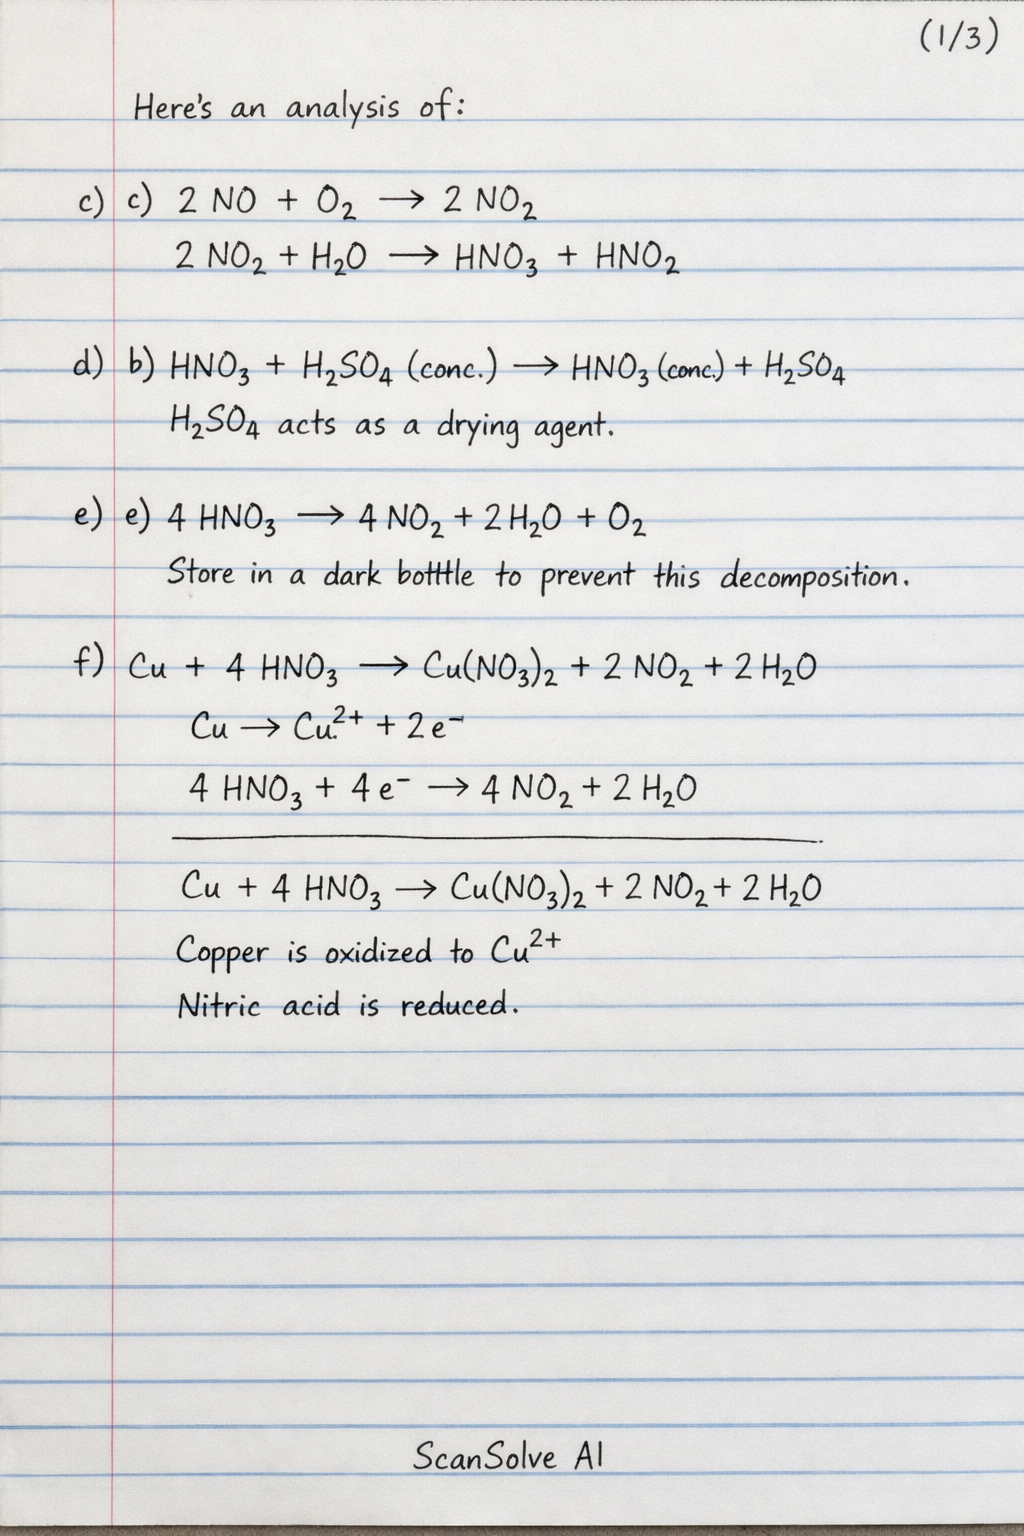 (1/3)
Here's an analysis of:
c) c) 2 NO + O₂ → 2 NO₂
2 NO₂ + H₂O → HNO₃ + HNO₂
d) b) HNO₃ + H₂SO₄ (conc.) → HNO₃ (conc.) + H₂SO₄
H₂SO₄ acts as a drying agent.
e) e) 4 HNO₃ → 4 NO₂ + 2 H₂O + O₂
Store in a dark botttle to prevent this decomposition.
f) Cu + 4 HNO₃ → Cu(NO₃)₂ + 2 NO₂ + 2 H₂O
Cu → Cu.²⁺ + 2 e⁻
4 HNO₃ + 4 e⁻ → 4 NO₂ + 2 H₂O
Cu + 4 HNO₃ → Cu(NO₃)₂ + 2 NO₂ + 2 H₂O
Copper is oxidized to Cu²⁺
Nitric acid is reduced.
ScanSolve AI